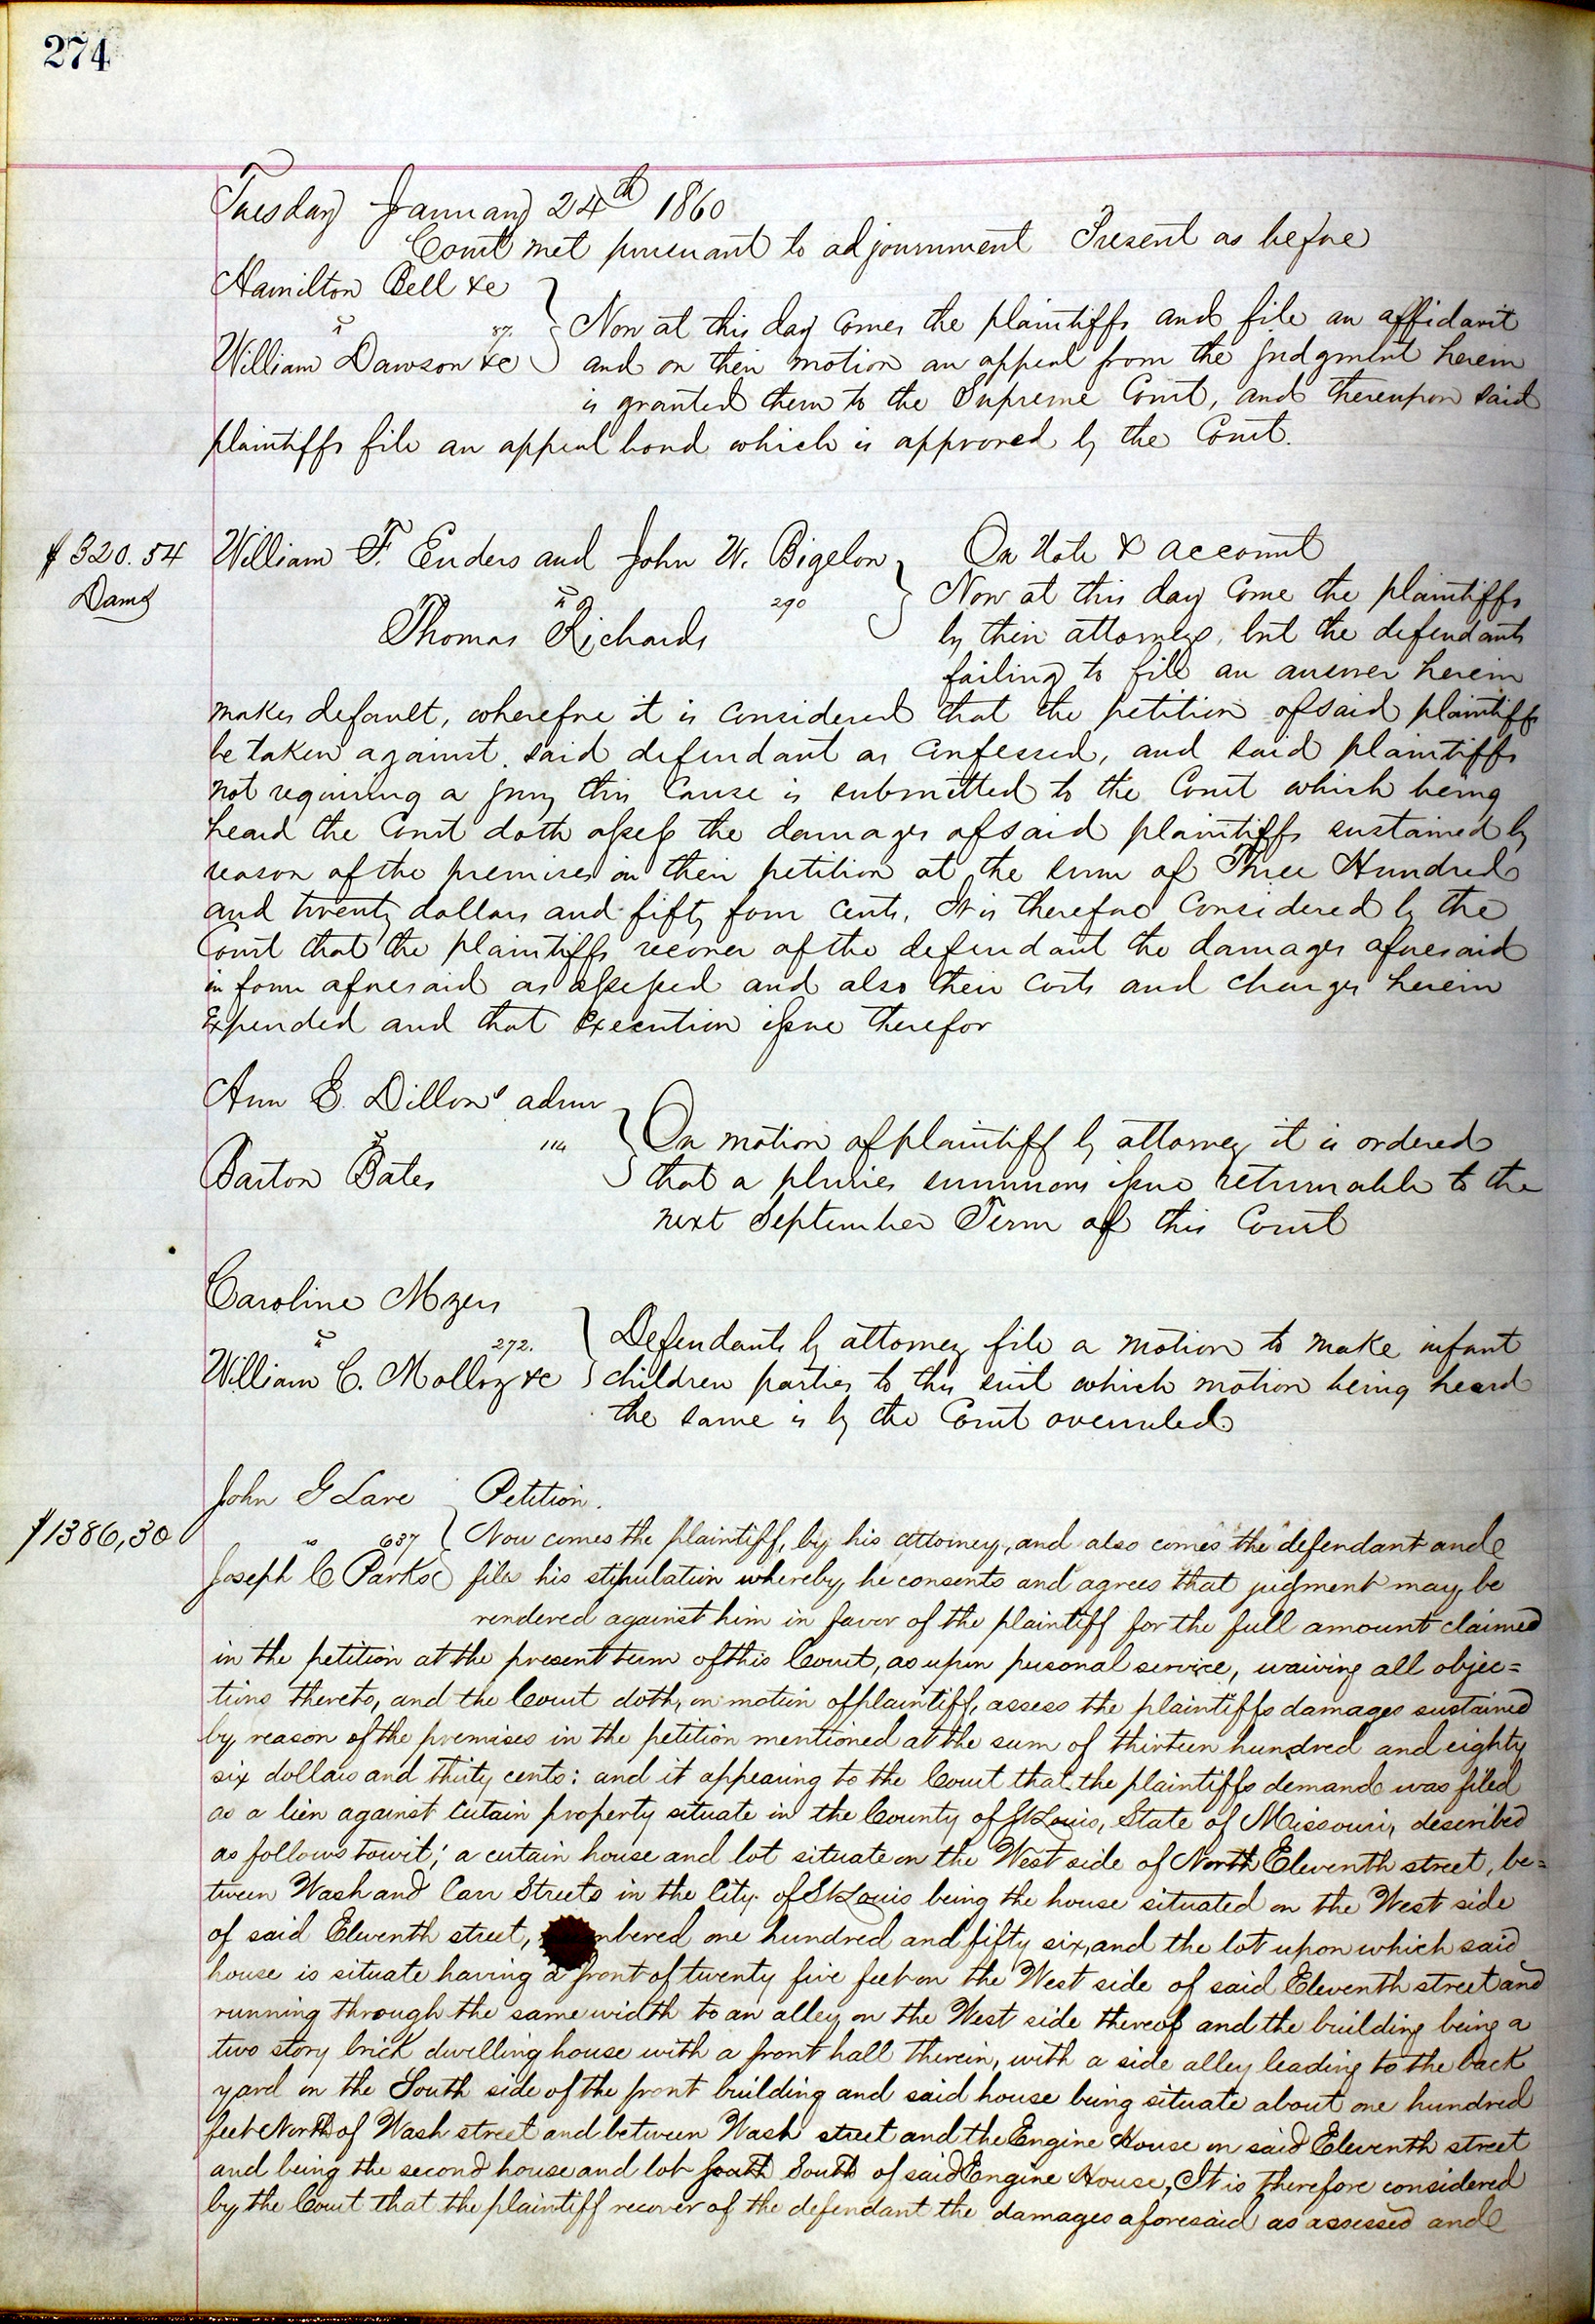 274
Tuesday January 24th 1860
Court met pursuant to adjournment Present as before
Hamilton Bell &c
vs 87.
William Dawson &c
Now at this day comes the plaintiffs and file an affidavit
and on their motion an appeal from the judgment herein
is granted them to the Supreme Court, and thereupon said
plaintiffs file an appeal bond which is approved by the Court.
$320.54
Damg
William F. Enders and John W. Bigelow
vs 290
Thomas Richards
On Note & account
Now at this day come the plaintiffs
by their attorneys, but the defendants
failing to file an answer herein
makes default, wherefore it is considered that the petition of said plaintiffs
be taken against said defendant as confessed, and said plaintiffs
not requiring a jury this cause is submitted to the Court which being
heard the Court doth assess the damages of said plaintiffs sustained by
reason of the premises in their petition at the sum of Three Hundred
and twenty dollars and fifty four cents, It is therefore considered by the
Court that the plaintiffs recover of the defendant the damages aforesaid
in form aforesaid as assessed and also their costs and charges herein
Expended and that execution issue therefor
Ann E. Dillon's admr
vs 114
Barton Bates
On motion of plaintiff by attorney it is ordered
that a pluries summons issue returnable to the
next September Term of this Court
Caroline Myers
vs 272.
William C. Molloy &c
Defendants by attorney file a motion to make infant
children parties to this suit which motion being heard
the same is by the Court overruled.
$1386,30
John G Lare
vs 637
Joseph C Parks
Petition.
Now comes the plaintiff, by his attorney, and also comes the defendant and
files his stipulation whereby he consents and agrees that judgment may be
rendered against him in favor of the plaintiff for the full amount claimed
in the petition at the present term of this Court, as upon personal service, waiving all objec=
tions thereto, and the Court doth, on motion of plaintiff, assess the plaintiffs damages sustained
by reason of the premises in the petition mentioned at the sum of thirteen hundred and eighty
six dollars and thirty cents: and it appearing to the Court that the plaintiffs demand was filed
as a lien against certain property situate in the County of St Louis, State of Missouri, described
as follows towit; a certain house and lot situate on the West side of North Eleventh street, be=
tween Wash and Carr Streets in the City of St Louis being the house situated on the West side
of said Eleventh street, mbered one hundred and fifty six, and the lot upon which said
house is situate having a front of twenty five feet on the West side of said Eleventh street and
running through the same width to an alley on the West side thereof and the building being a
two story brick dwelling house with a front hall therein, with a side alley leading to the back
yard on the South side of the front building and said house being situate about one hundred
feet North of Wash street and between Wash street and the Engine House on said Eleventh street
and being the second house and lot South South of said Engine House, It is therefore considered
by the Court that the plaintiff recover of the defendant the damages aforesaid as assessed and